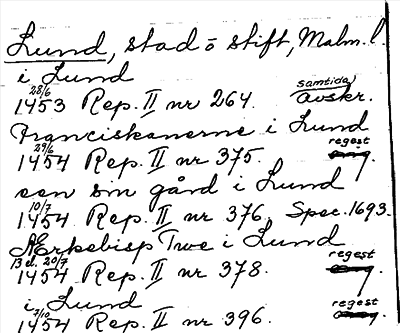 Lund, stad o stift, Malm. l.
i Lund
28/6 samtida
1453 Rep. II nr 264. Avskr.
Franciskanerne i Lund
29/6 regest
1454 Rep. II nr 375.
sen sin gård i Lund
10/7
1454 Rep. II nr 376. Spec. 1693.
Ærkebisp Twe i Lund
13 el. 20/7 regest
1454 Rep. II nr 378.
i Lund
2/10 regest
1454 Rep. II nr 396.